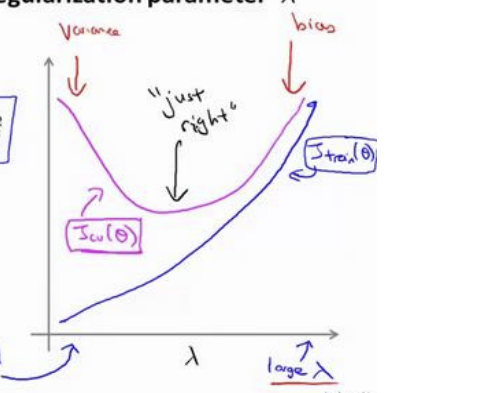 egularization parameter λ
Variance
bias
"just
right"
J train(θ)
J cv(θ)
λ
large λ